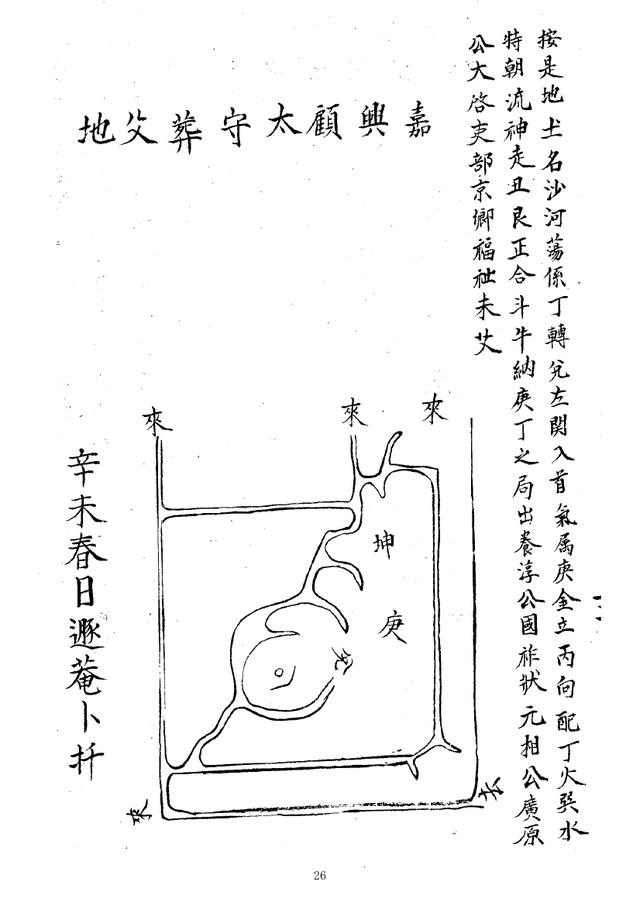 按是地土名沙河蕩係丁轉兌左関入首氣属庚金立丙向配丁火巽水
特朝流神走丑艮正合斗牛納庚丁之局出養淳公國祚狀元相公廣原
公大啓吏部京鄉福祉未艾
嘉興顧太守葬父地
來
來
來
坤
庚
兌
來
去
辛未春日遯菴卜扦
26